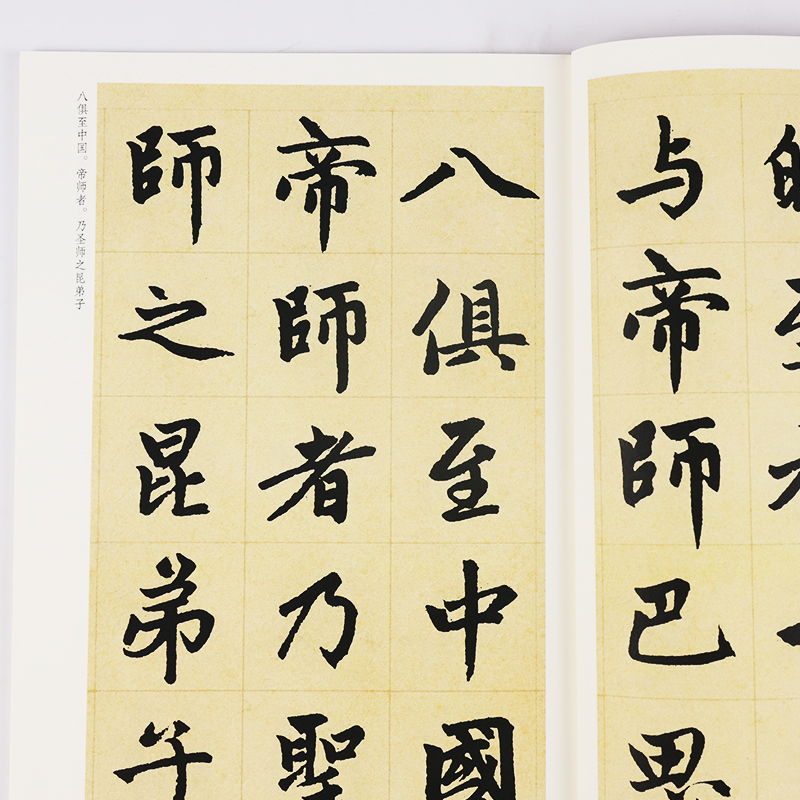 与帝師巴思
八俱至中國
帝師者乃聖
師之昆弟子
八俱至中国。帝师者。乃圣师之昆弟子